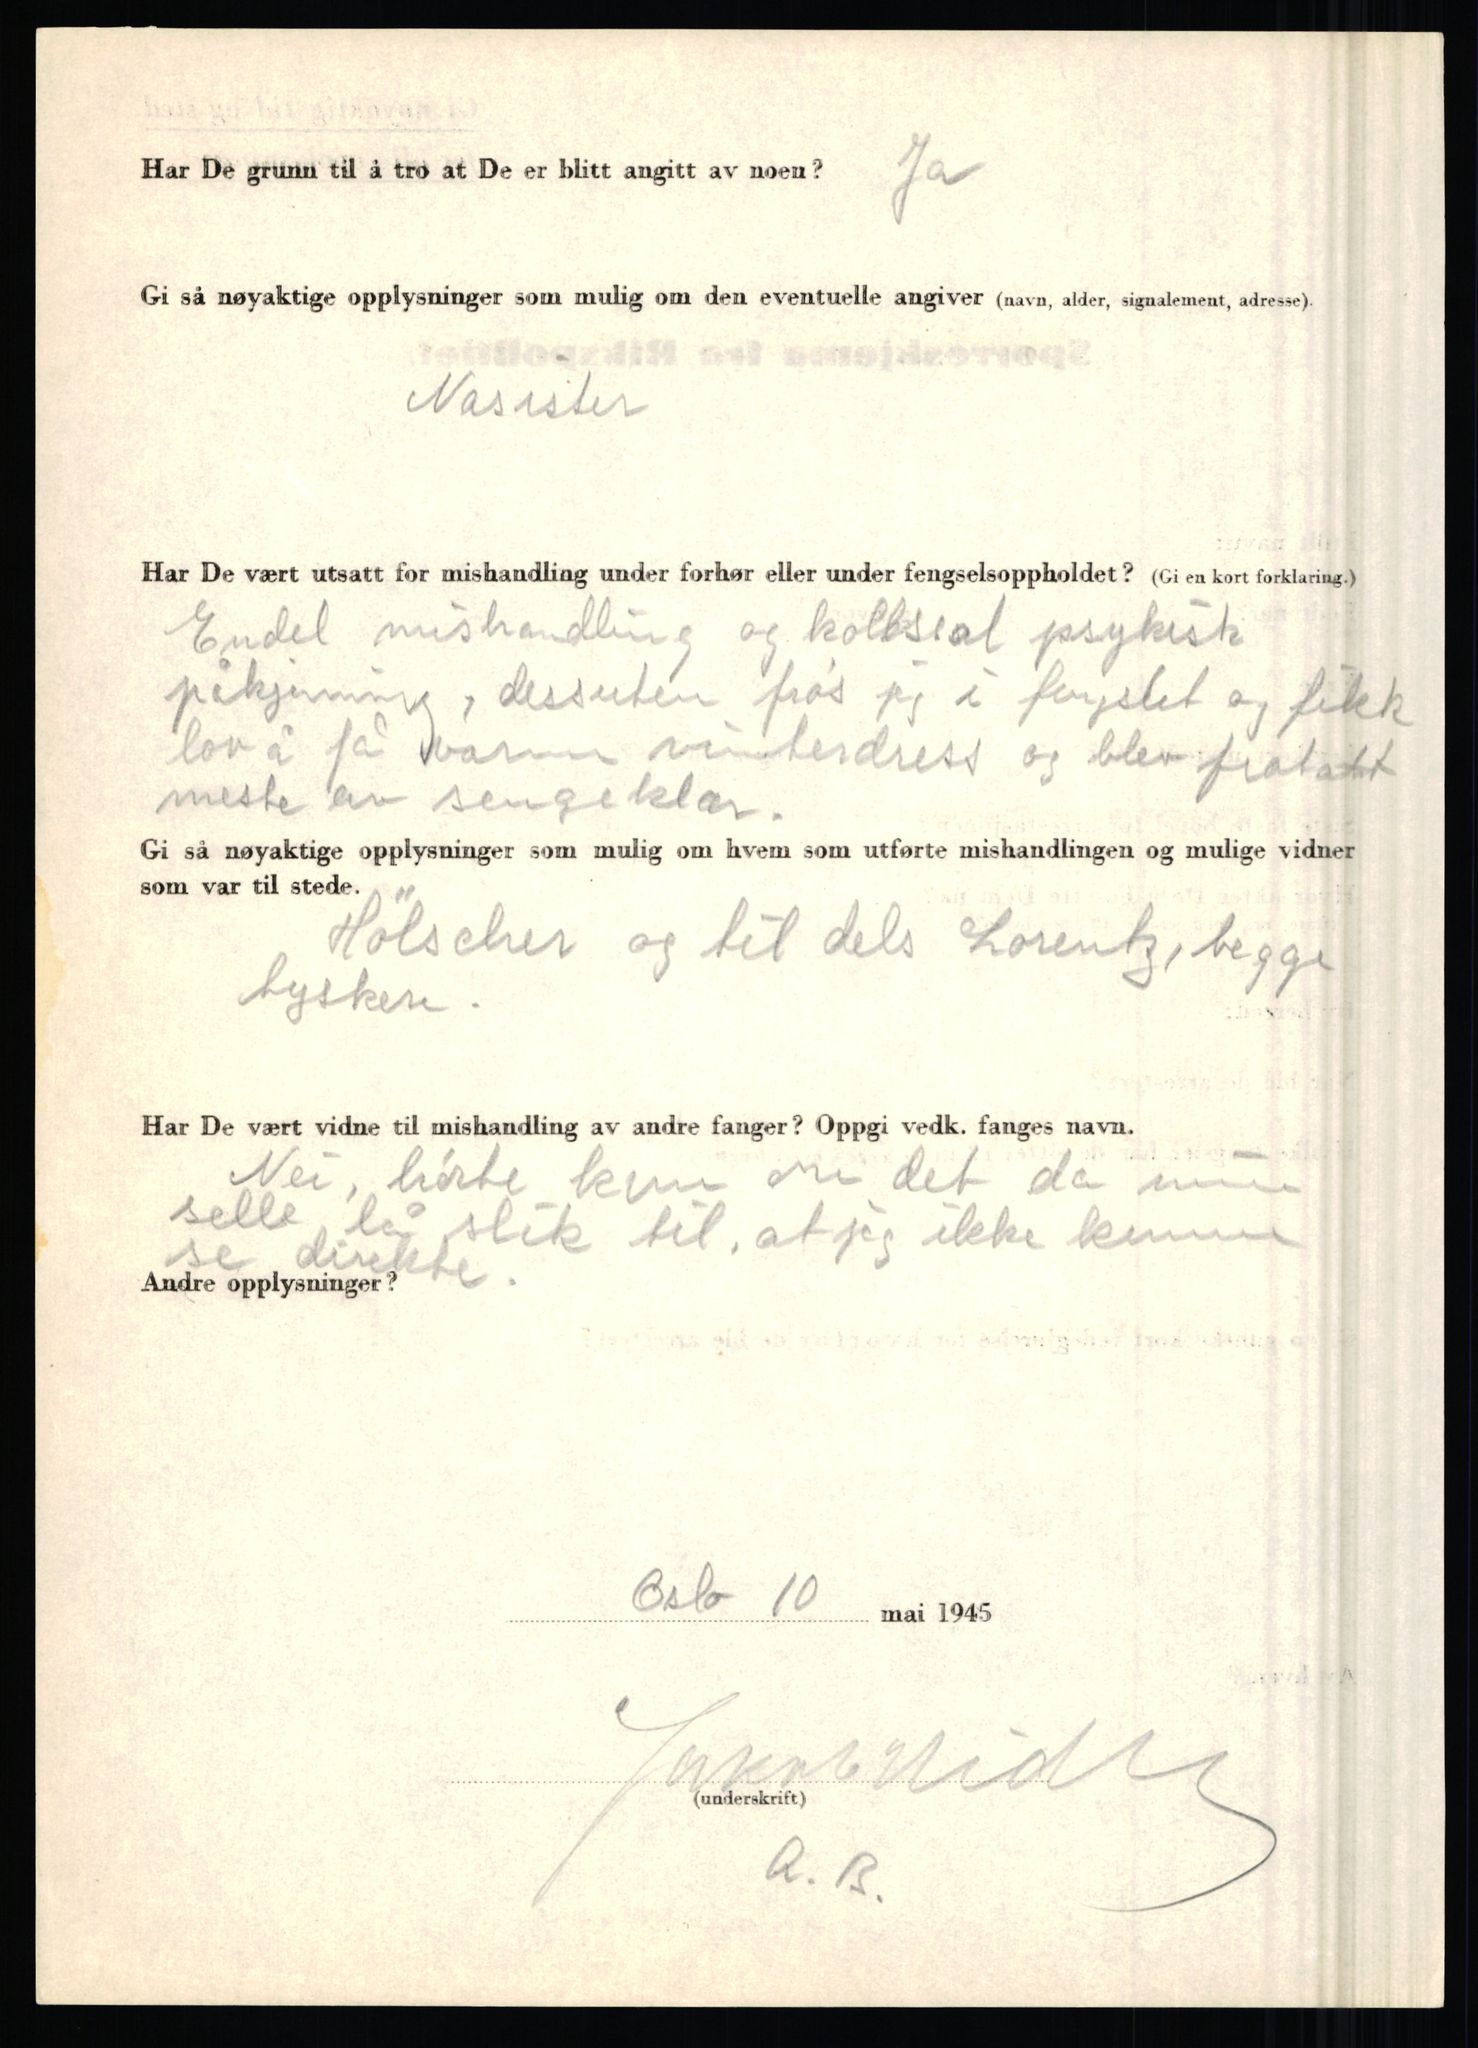 Har De grunn til å tro at De er blitt angitt av noen? Ja
Gi så nøyaktige opplysninger som mulig om den eventuelle angiver (navn, alder, signalement, adresse).
Nasister
Har De vært utsatt for mishandling under forhør eller under fengselsoppholdet? (Gi en kort forklaring.)
Endel mishandling og kollosal psykisk
påkjenning, dessuten frøs jeg i fengslet og fikk
lov å få varm vinterdress og blev fratatt
meste av sengeklær.
Gi så nøyaktige opplysninger som mulig om hvem som utførte mishandlingen og mulige vidner
som var til stede.
Hölscher og til dels Lorentz, begge
tyskere.
Har De vært vidne til mishandling av andre fanger? Oppgi vedk. fanges navn.
Nei, hørte kun om det da min
selle lå slik til, at jeg ikke kunne
se direkte.
Andre opplysninger?
Oslo 10 mai 1945
(underskrift)
A. B.